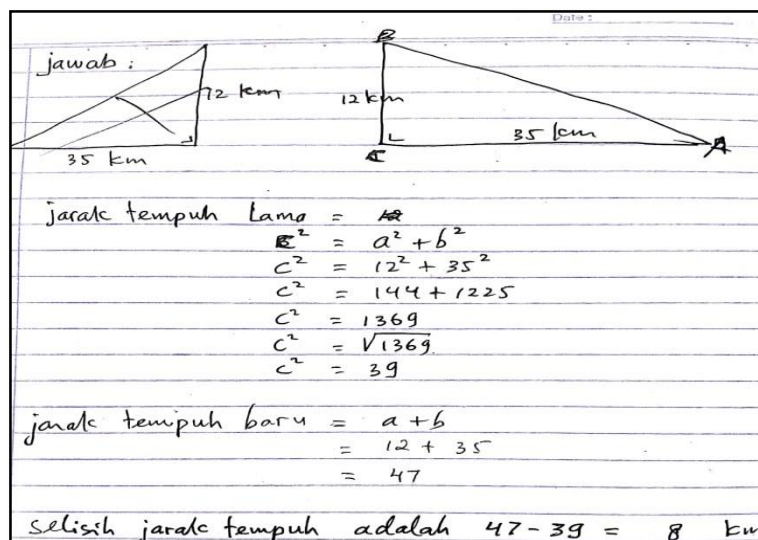 Date :
jawab :
12 km
35 km
B
12 km
35 km
C
A
jarak tempuh Lama =
c² = a² + b²
c² = 12² + 35²
c² = 144 + 1225
c² = 1369
c² = √1369
c² = 39
jarak tempuh baru = a + b
= 12 + 35
= 47
selisih jarak tempuh adalah 47 - 39 = 8 km